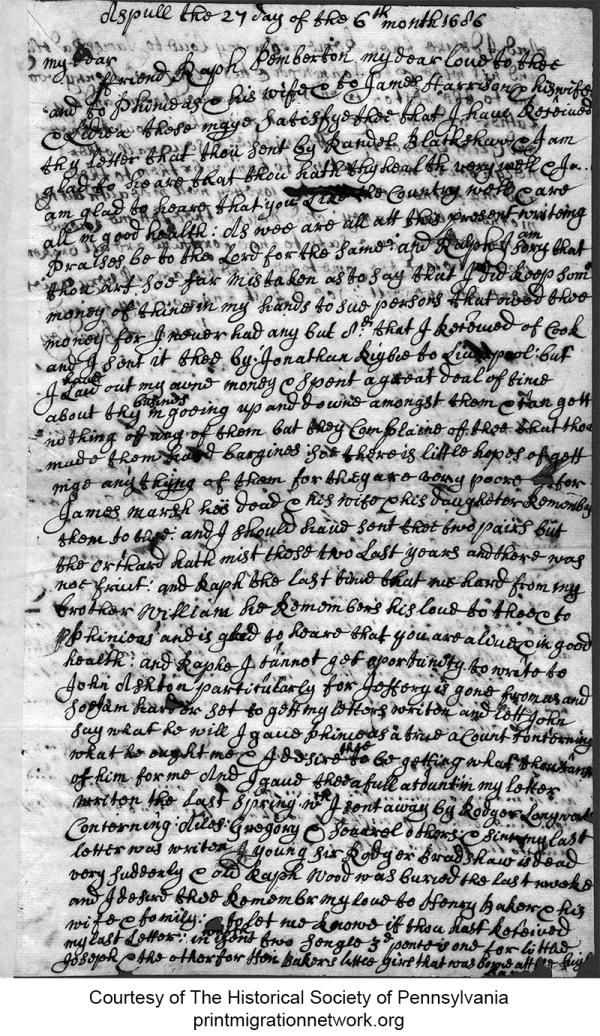 Aspull the 27 day of the 6th month 1686
my dear
ffriend Raph Pemberton my dear love to thee
and to Phinieas & his wife & to James Harrison & his wife
& these maye satisfye thee that I have Received
thy letter that thou sent by Randel Blackshaw & I am
glad to heare that thou hath thy health very well & I
am glad to heare that you Like the Country well & are
all in good health: As wee are all att this present writeing
Praises be to the Lord for the same: and Ralph I am sory that
thou art soe far mistaken as to say that I did keep som
money of thine in my hands to sue persons that owed thee
money for I never had any but 8s that I Received of Cook
and I sent it thee by: Jonathan Rigbie to Liverpool: but
I have Laid out my owne money & spent a great deal of time
about thy busines in goeing up and downe amongst them & Can gett
nothing of any of them but they Complaine of thee that thou
made them hard bargines soe there is little hopes of gett
inge any thing of them for they are very poore & for
James marsh hee is dead & his wife & his daughter Remembers
them to thee: and I should have sent thee two pairs but
the orchard hath mist these two Last years and there was
noe fruit: and Raph the last time that we hard from my
brother William he Remembers his love to thee & to
Phinieas and is glad to heare that you are alive & in good
health: and Raphe I cannot get oportunity to write to
John Ashton particularly for Jeffery is gone from us and
soe I am hard for set to gett my letters writen and lett John
say what he will I gave phinieas a true acount Concerning
what he ought me & I desire thee to be getting what thou can
of him for me And I gave thee a full acount in my letter
writen the Last Spring wch I sent away by Rodger Longworth
Concerning: Giles: Gregory & severel others & since my last
letter was writen young sir Rodger Bradshaw is dead
very suddenly & old Raph Wood was buried the last weeke
and I desire thee Remembr my love to Henry Baker & his
wife & family: & to let me knowe if thou hast Received
my last Letter: in sent two sengle 3d pence one for little
Joseph & the other for Hen Bakers little girl that was borne att
Courtesy of The Historical Society of Pennsylvania
printmigrationnetwork.org